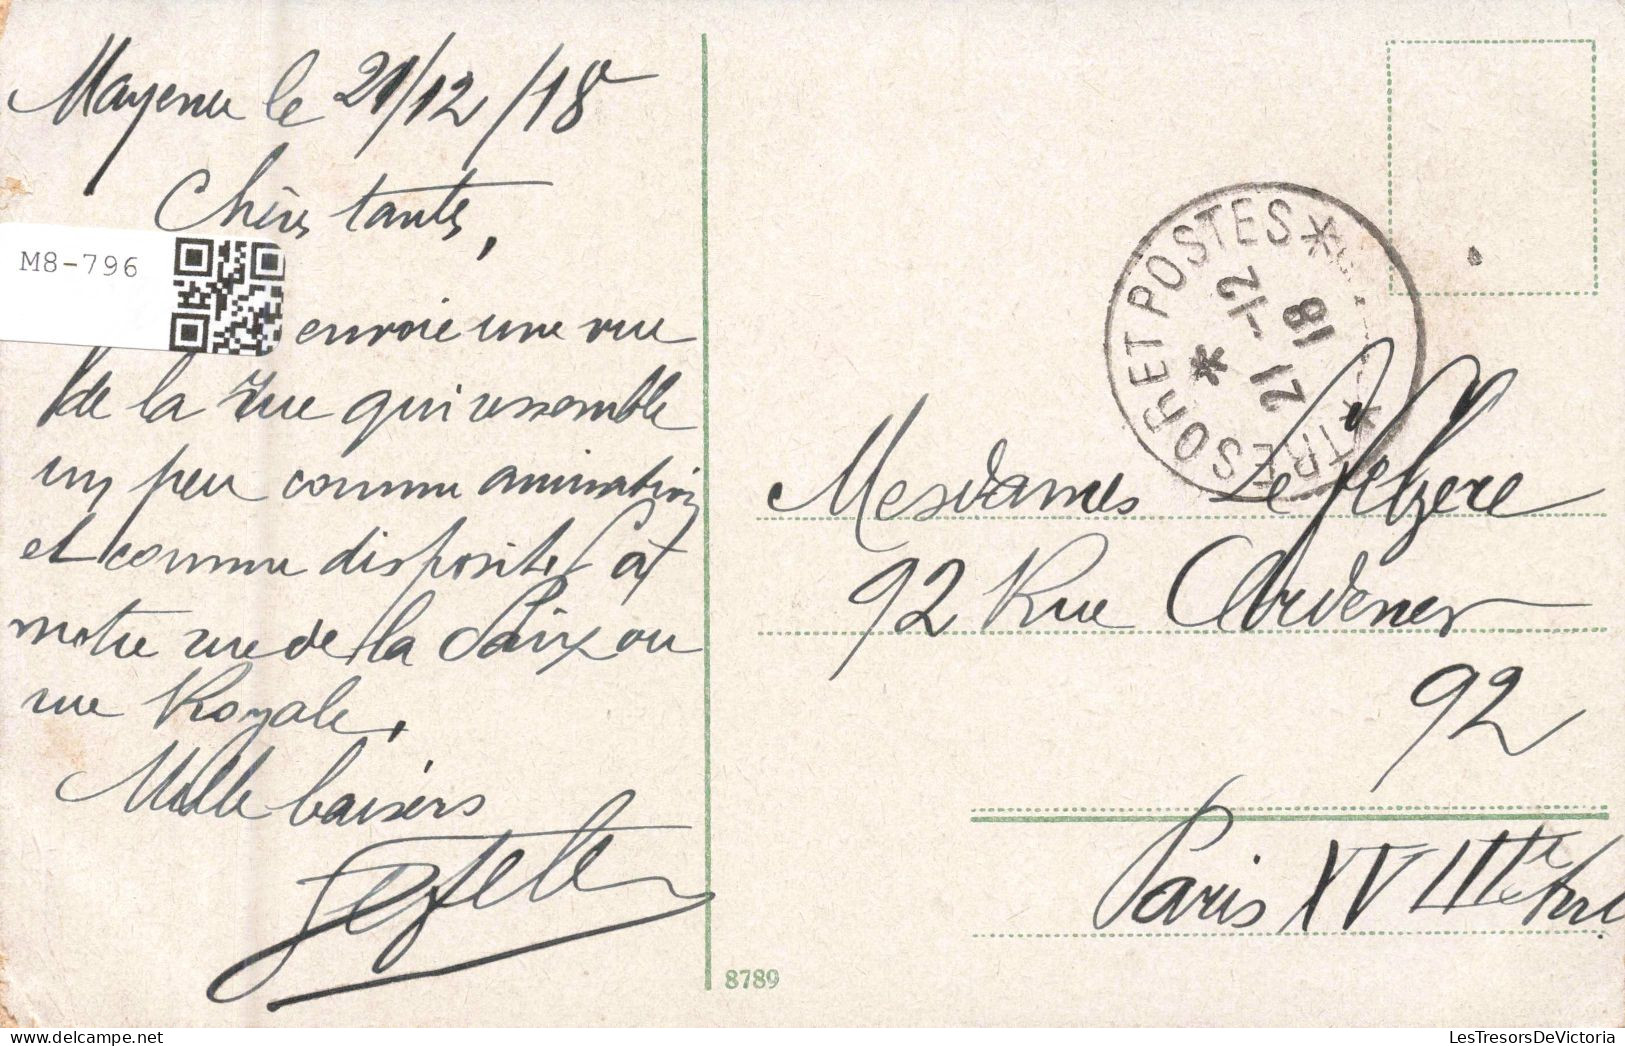 Mayence le 21/12/18
Chères tantes,
M8-796
envoie une vue
de la rue qui ressemble
un peu comme animation
et comme disposition à
notre rue de la Paix ou
rue Royale.
Mille baisers
TRESOR ET POSTES
21-12
18
Mesdames
92 Rue Ordener
92
Paris XVIIIe
8789
LesTresorsDeVictoria.com